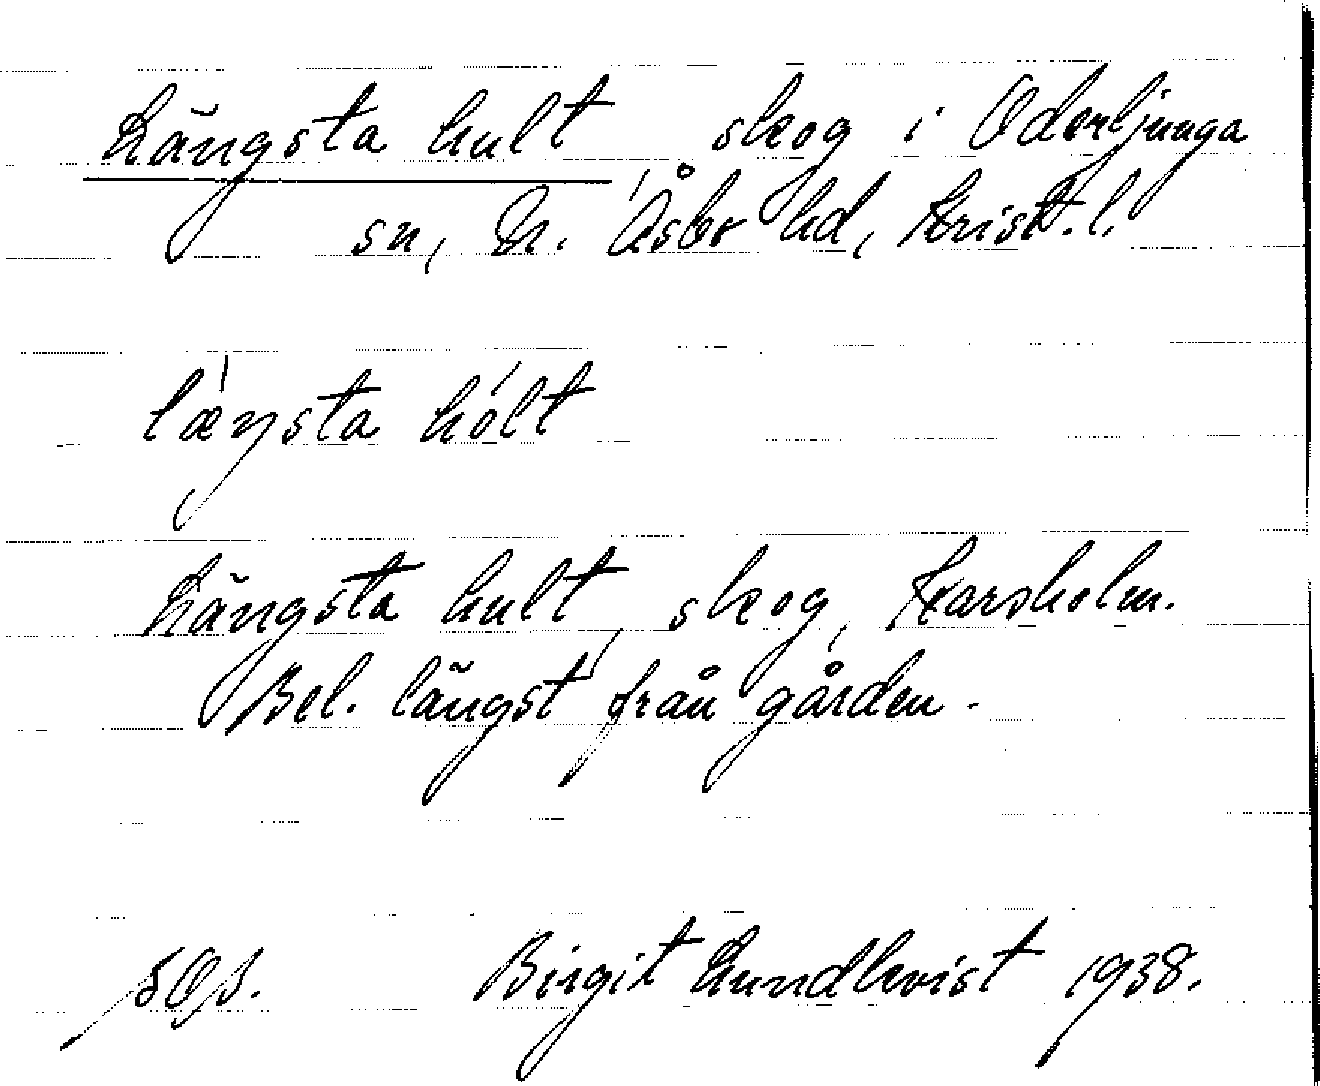 Längsta hult, skog i Oderljunga
sn, N. Åsbo hd, Krist. l.
læŋsta hólt
Längsta hult, skog, Karsholm.
Bel. längst från gården.
Birgit Lundkvist 1938.